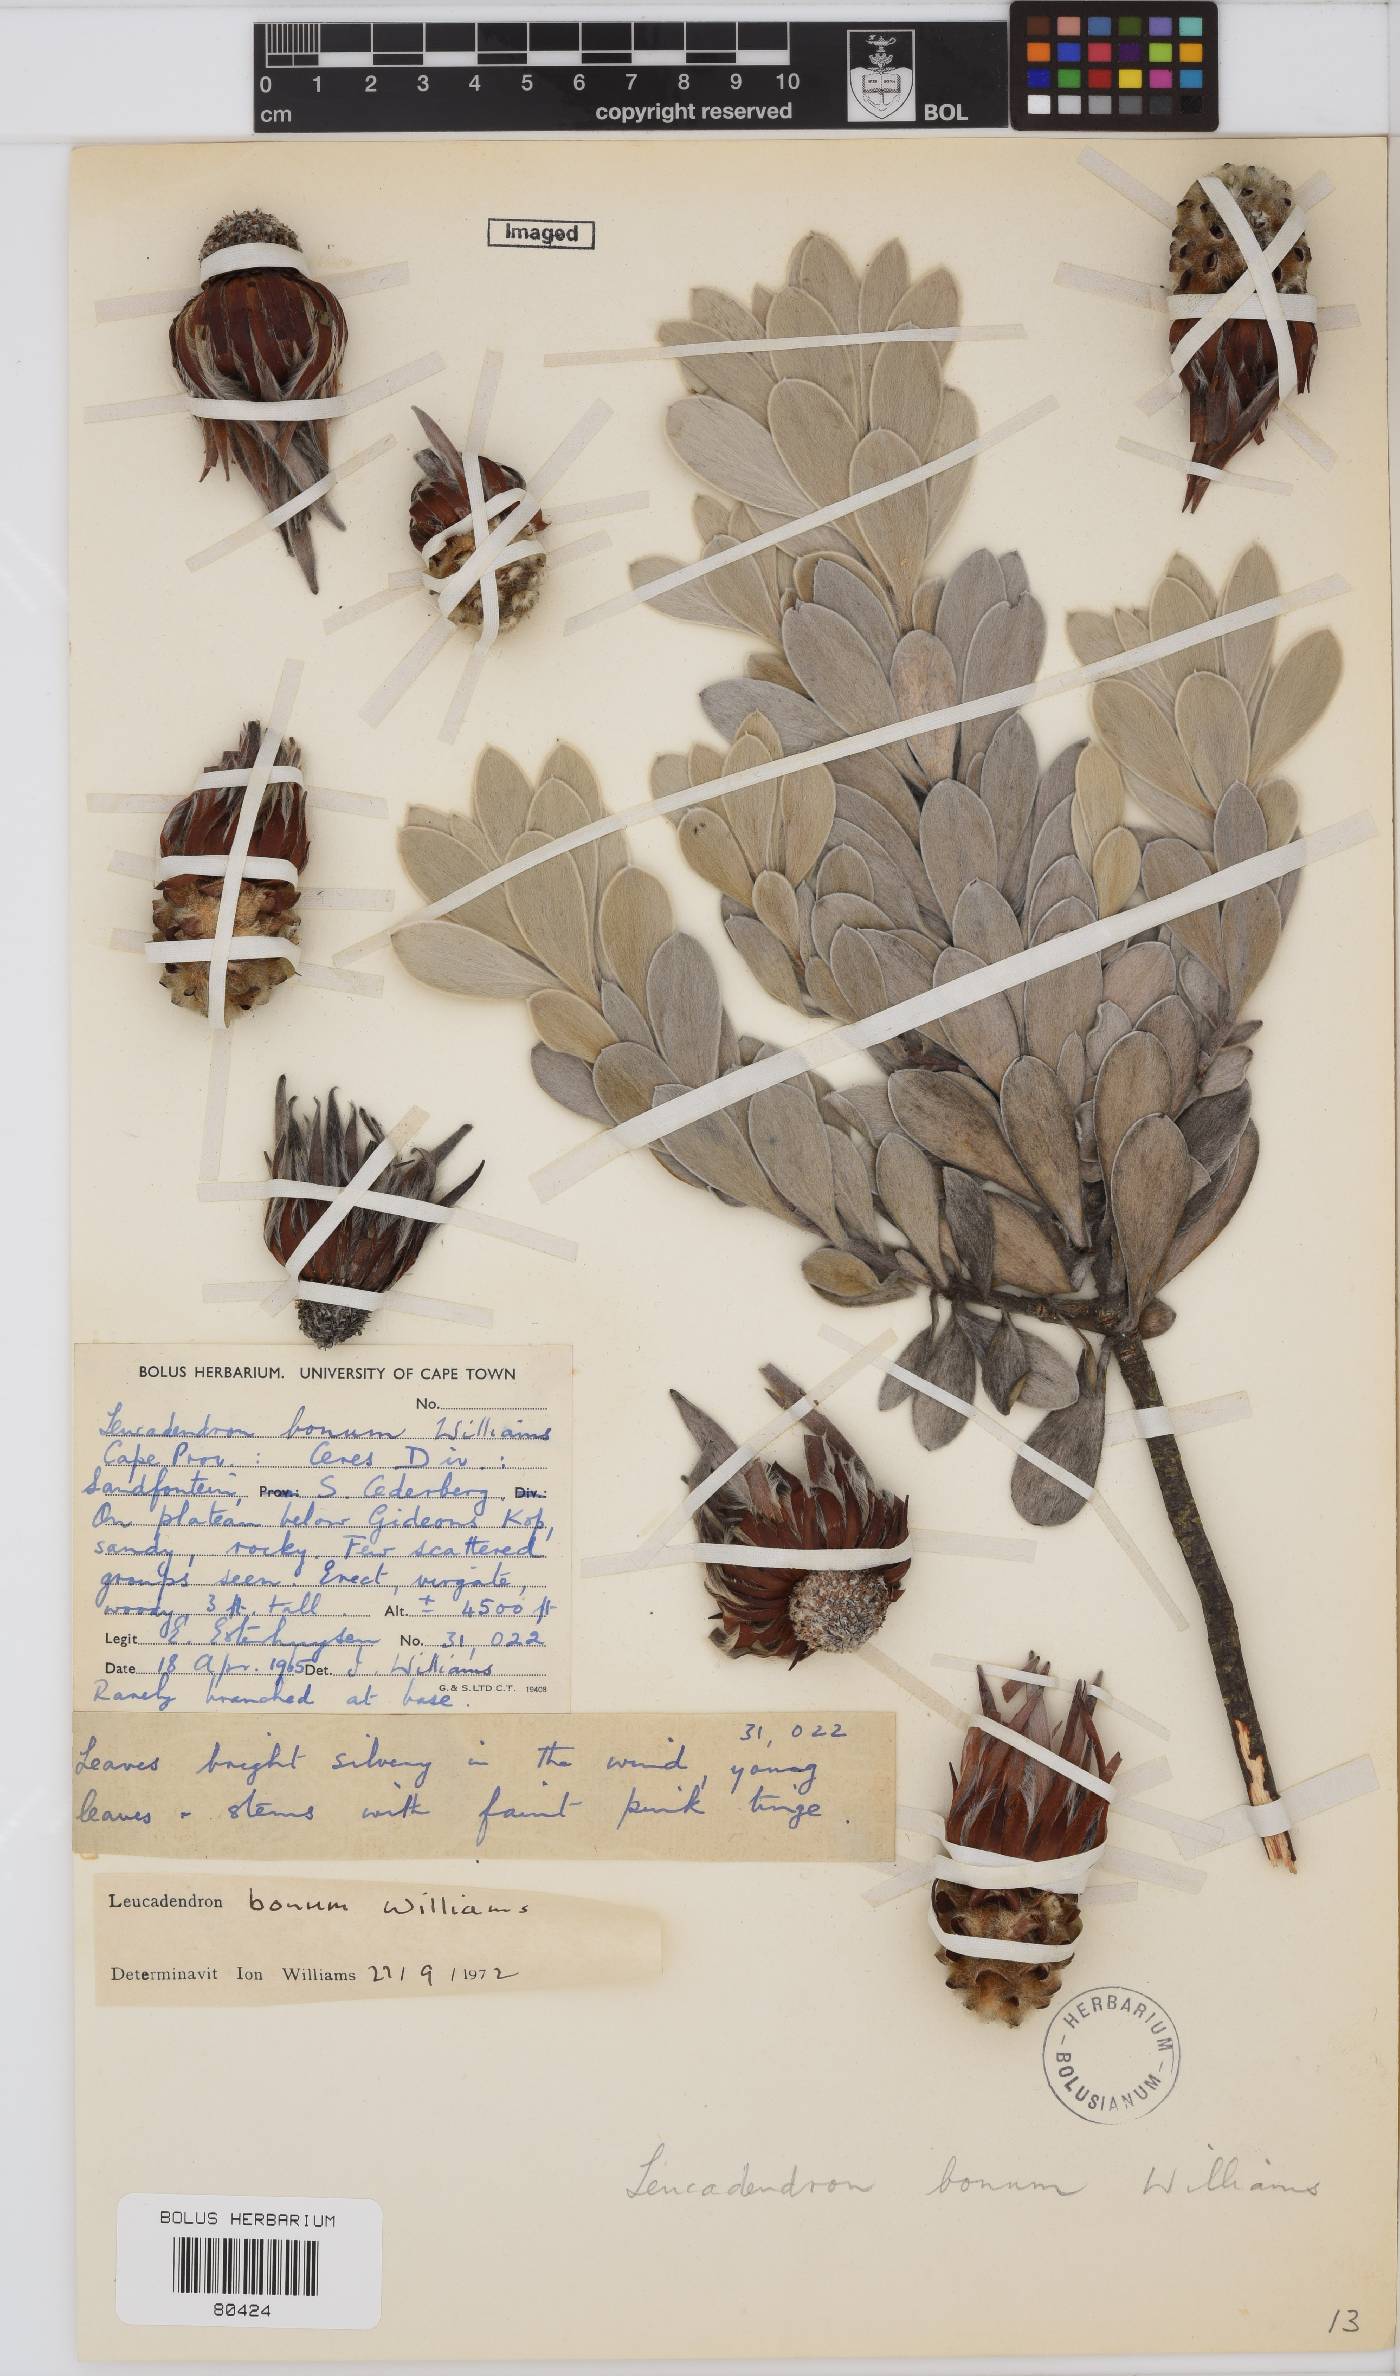 0 1 2 3 4 5 6 7 8 9 10
cm
copyright reserved
BOL
Imaged
BOLUS HERBARIUM. UNIVERSITY OF CAPE TOWN
No.
Leucadendron bonum Williams
Cape Prov. : Ceres Div. :
Sandfontein, Prov.: S. Cederberg. Div.:
On plateau below Gideons Kop,
sandy, rocky. Few scattered
groups seen. Erect, virgate,
woody, 3 ft. tall. Alt. ± 4500 ft
Legit E. Esterhuysen No. 31,022
Date 18 Apr. 1965 Det. I. Williams
G. & S. LTD C.T. 19408
Rarely branched at base.
31,022
Leaves bright silvery in the wind, young
leaves & stems with faint pink tinge.
Leucadendron bonum Williams
Determinavit Ion Williams 27/9/1972
HERBARIUM
BOLUSIANUM
Leucadendron bonum Williams
BOLUS HERBARIUM
80424
13